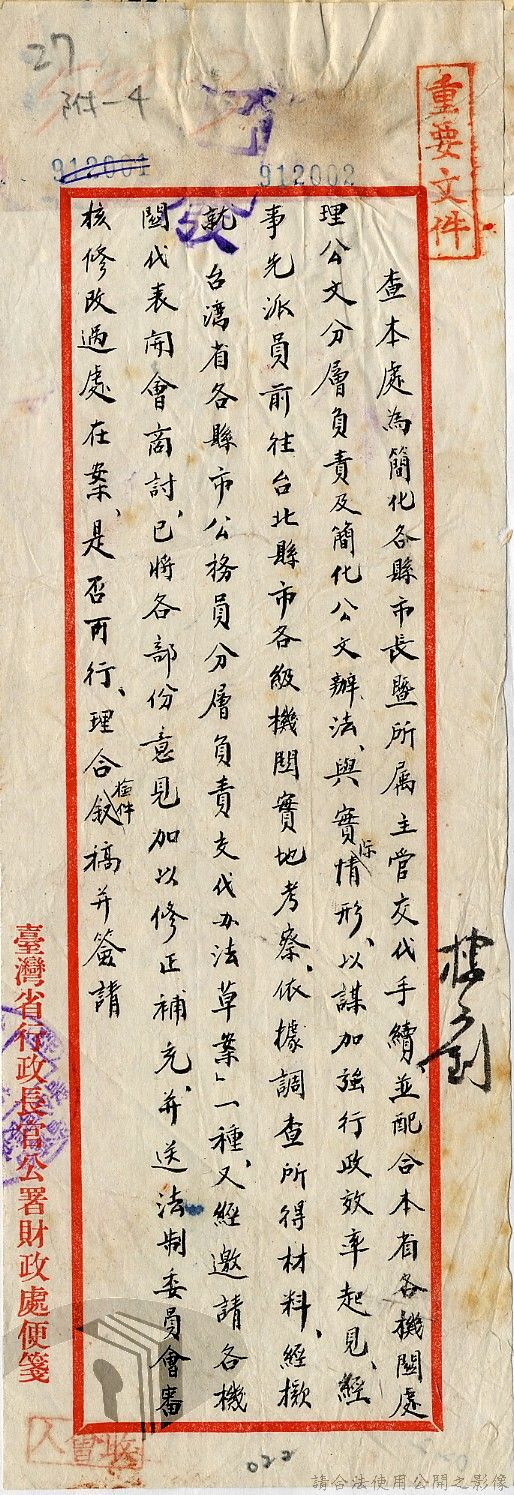 27
附一4
912001
912002
重要文件
發
查本處為簡化各縣市長暨所属主管交代手續並配合本省各機關處
理公文分層負責及簡化公文辦法、與實际情形、以謀加強行政效率起見、經
事先派員前往台北縣市各級機關實地考察、依據調查所得材料、經擬
就「台灣省各縣市公務員分層負責交代办法草案」一種、又經邀請各機
關代表開會商討、已將各部份意見加以修正補充、并送法制委員會審
核修改過處在案、是否可行、理合叙稿检件并簽請
臺灣省行政長官公署財政處便箋
022
請合法使用公開之影像